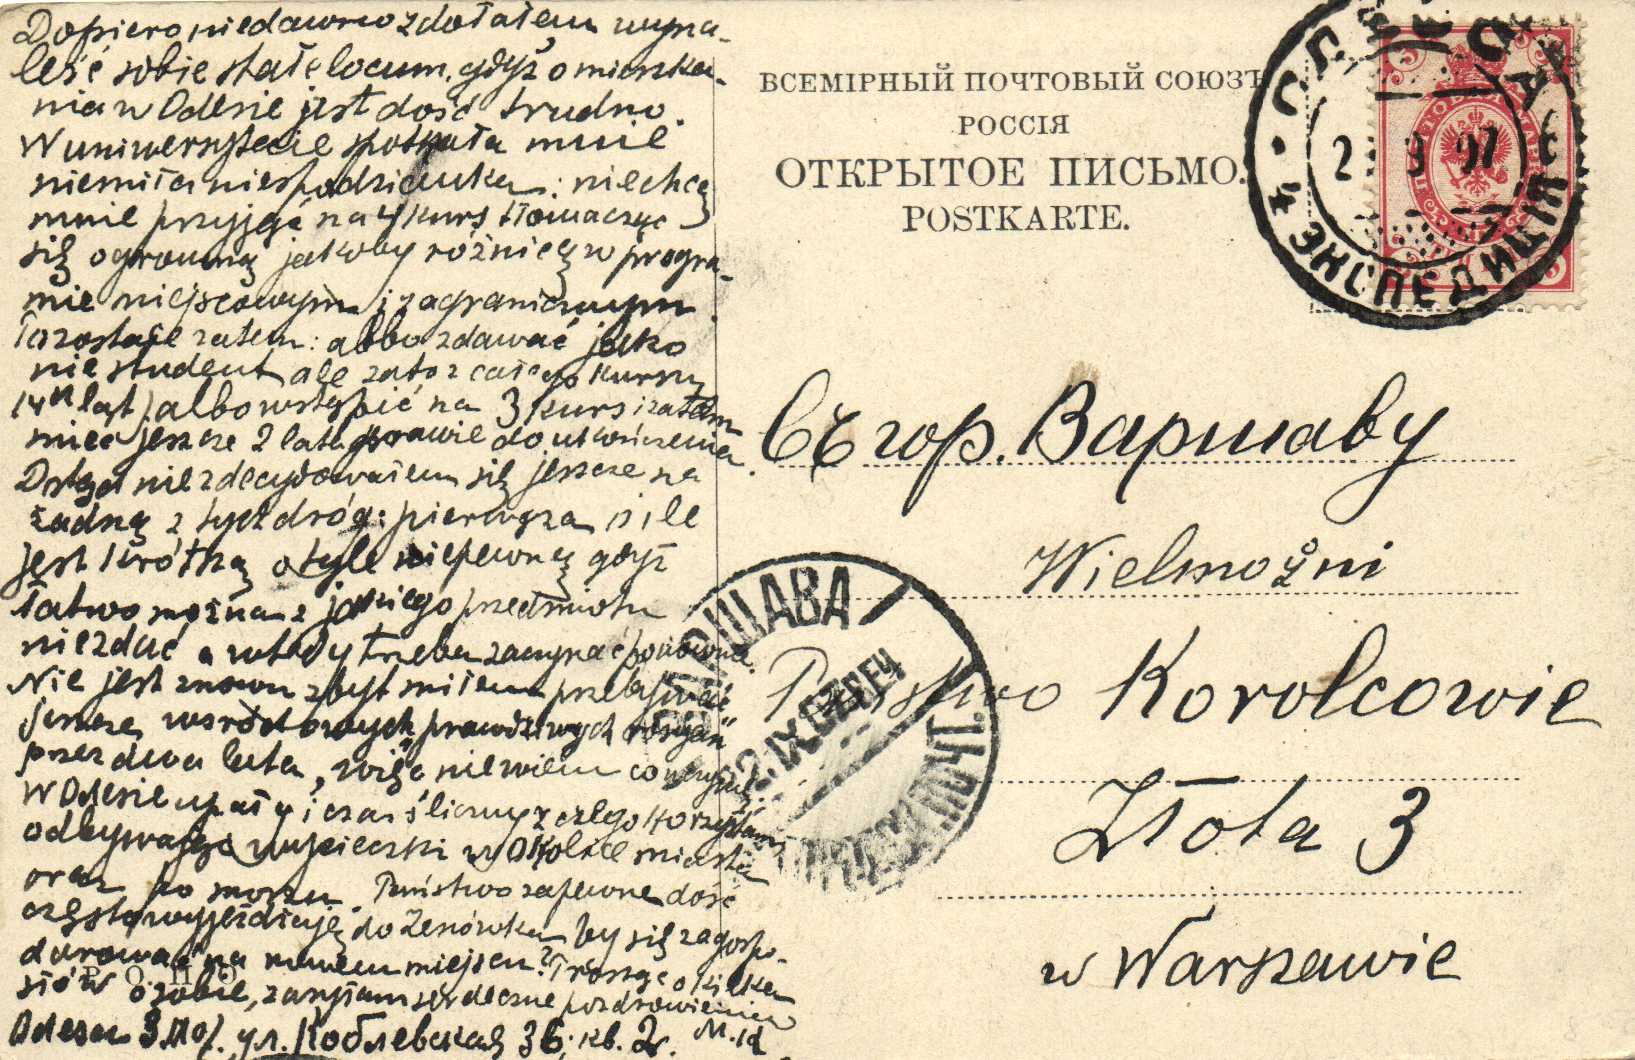 Dopiero niedawno zdołałem wyna-
leść sobie stałe locum, gdyż o mieszka-
nia w Odesie jest dość trudno.
W uniwersytecie spotkała mnie
niemiła niespodzianka: niechcą
mnie przyjąć na 4 kurs tłomacząc
się ogromną jakoby różnicą w progra-
mie miejscowym i zagranicznym.
Pozostaje zatem: albo zdawać jako
nie student ale zato z całego kursu
lat) albo wstąpić na 3 kurs i zatem
mieć jeszcze 2 lata prawie do ukończenia.
Dotąd nie zdecydowałem się jeszcze na
żadną z tych dróg: pierwsza o ile
jest krótką o tyle niepewną gdyż
łatwo można z jakiego przedmiotu
niezdać a wtedy trzeba zaczynać ponownie.
Nie jest znowu zbyt miłem przebywać
jeszcze wśród owych „prawdziwych rosyan"
przez dwa lata, więc nie wiem co
W Odesie upały i czas śliczny z czego korzystam
odbywając wycieczki w okolice miasta
oraz po morzu. Państwo zapewne dość
często wyjeżdżają do Zenówka by się zagospo-
darować na nowem miejscu? Proszę o kilka
słów o sobie, zasyłam serdeczne pozdrowienia
Odesa ул. Коблевская 36, кв. 2.
ВСЕМІРНЫЙ ПОЧТОВЫЙ СОЮЗЪ
РОССІЯ
ОТКРЫТОЕ ПИСЬМО.
POSTKARTE.
4 ЭКСПЕДИЦІЯ
ВАРШАВА
Въ гор. Варшаву
Wielmożni
Państwo Korolcowie
Złota 3
w Warszawie